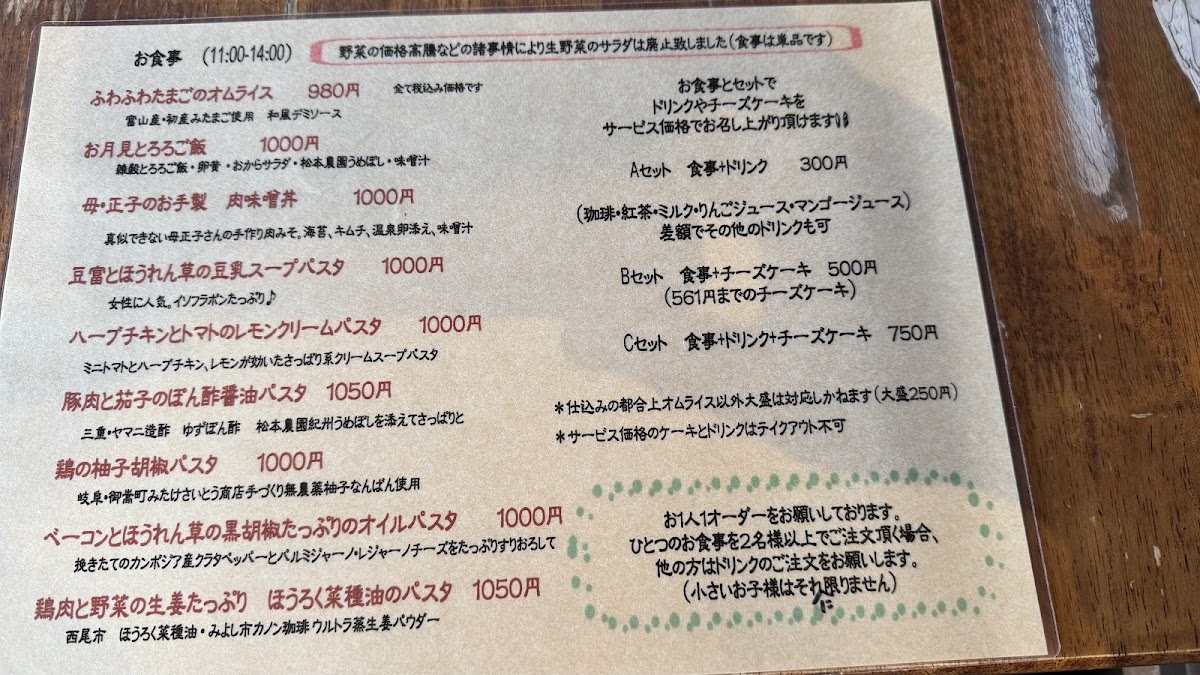 お食事 (11:00-14:00)
野菜の価格高騰などの諸事情により生野菜のサラダは廃止致しました(食事は単品です)
ふわふわたまごのオムライス 980円 全て税込み価格です
富山産・初産みたまご使用 和風デミソース
お月見とろろご飯 1000円
雑穀とろろご飯・卵黄・おからサラダ・松本農園うめぼし・味噌汁
母・正子のお手製 肉味噌丼 1000円
真似できない母正子さんの手作り肉みそ。海苔、キムチ、温泉卵添え、味噌汁
豆富とほうれん草の豆乳スープパスタ 1000円
女性に人気。イソフラボンたっぷり♪
ハーブチキンとトマトのレモンクリームパスタ 1000円
ミニトマトとハーブチキン、レモンが効いたさっぱり系クリームスープパスタ
豚肉と茄子のぽん酢醤油パスタ 1050円
三重・ヤマニ造酢 ゆずぽん酢 松本農園紀州うめぼしを添えてさっぱりと
鶏の柚子胡椒パスタ 1000円
岐阜・御嵩町みたけさいとう商店手づくり無農薬柚子なんばん使用
ベーコンとほうれん草の黒胡椒たっぷりのオイルパスタ 1000円
挽きたてのカンボジア産クラタペッパーとパルミジャーノ・レジャーノチーズをたっぷりすりおろして
鶏肉と野菜の生姜たっぷり ほうろく菜種油のパスタ 1050円
西尾市 ほうろく菜種油・みよし市カノン珈琲 ウルトラ蒸生姜パウダー
お食事とセットで
ドリンクやチーズケーキを
サービス価格でお召し上がり頂けます!!
Aセット 食事+ドリンク 300円
(珈琲・紅茶・ミルク・りんごジュース・マンゴージュース)
差額でその他のドリンクも可
Bセット 食事+チーズケーキ 500円
(561円までのチーズケーキ)
Cセット 食事+ドリンク+チーズケーキ 750円
*仕込みの都合上オムライス以外大盛は対応しかねます(大盛250円)
*サービス価格のケーキとドリンクはテイクアウト不可
お1人1オーダーをお願いしております。
ひとつのお食事を2名様以上でご注文頂く場合、
他の方はドリンクのご注文をお願いします。
(小さいお子様はそれに限りません)